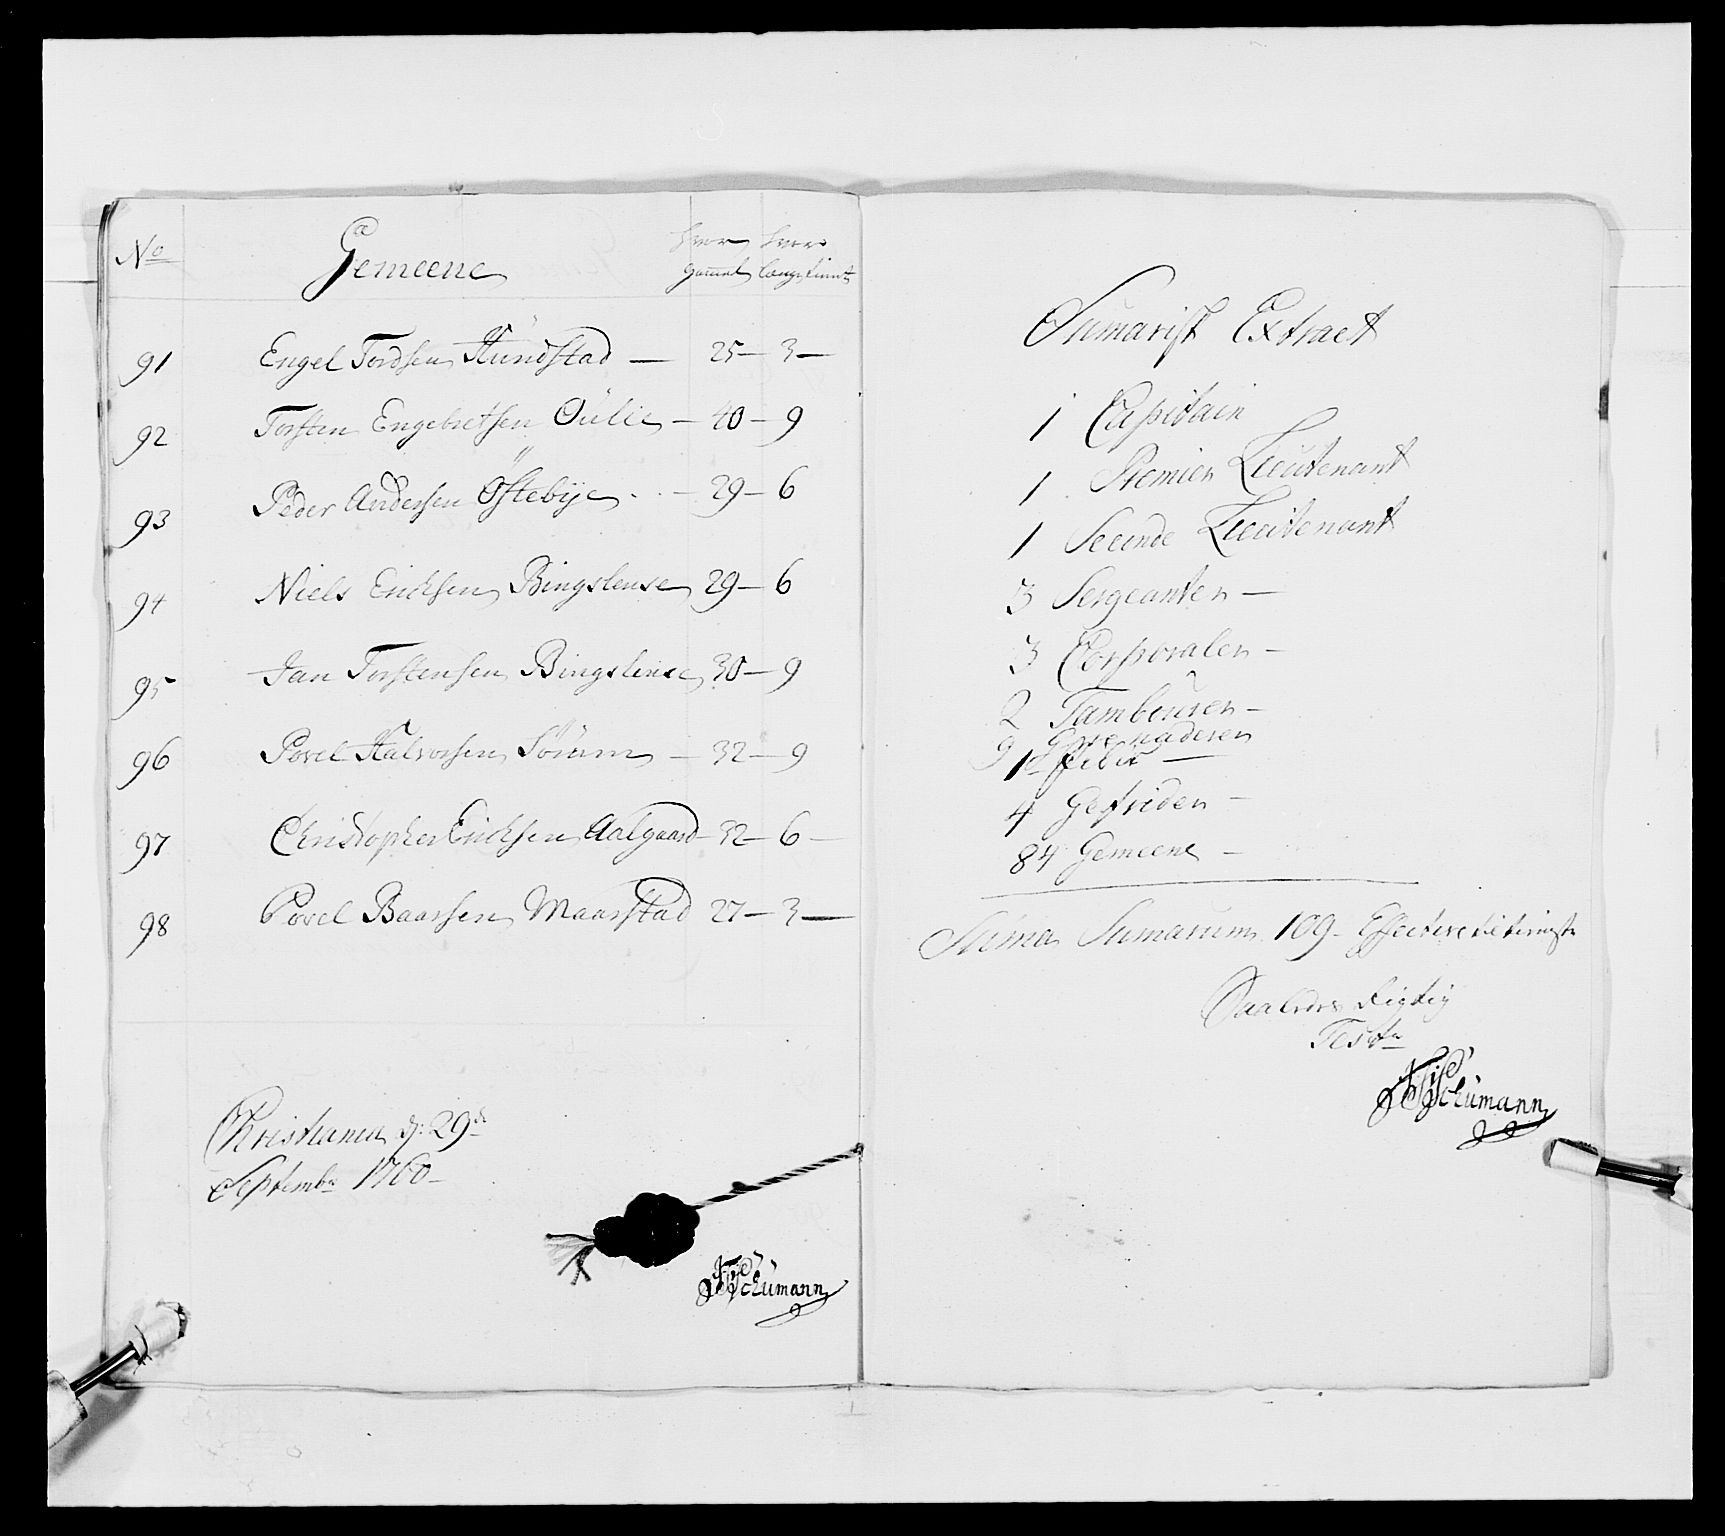 No Gemeene hvor gammel hvor lenge tient
91 Engel Tordsen Kundstad — 25 — 3 —
92 Torsten Engebretsen Oulie — 40 — 9
93 Peder Andersen Östebÿe . . — 29 — 6
94 Niels Erichsen Bingsleuse 29 — 6
95 Jan Torstensen Bingsleuse 30 — 9
96 Povel Halvorsen Sörum — 32 — 9
97 Christopher Erichsen Aalgaard — 32 — 6 —
98 Povel Baarsen Maarstad 27 — 3 —
Christiania d: 29de
Septembr 1760 —
Schumann
Sumarisk Extract
1 Capitain
1 Premier Lieutenant
1 Secunde Lieutenant
3 Sergeanter —
3 Corporaler —
2 Tambourer —
9 Grenaderer
1 Piber —
4 Gefrider —
84 Gemeene —
Suma Sumarum 109 — Effective til tieniste
Saaledes Rigtig
Test
Schumann